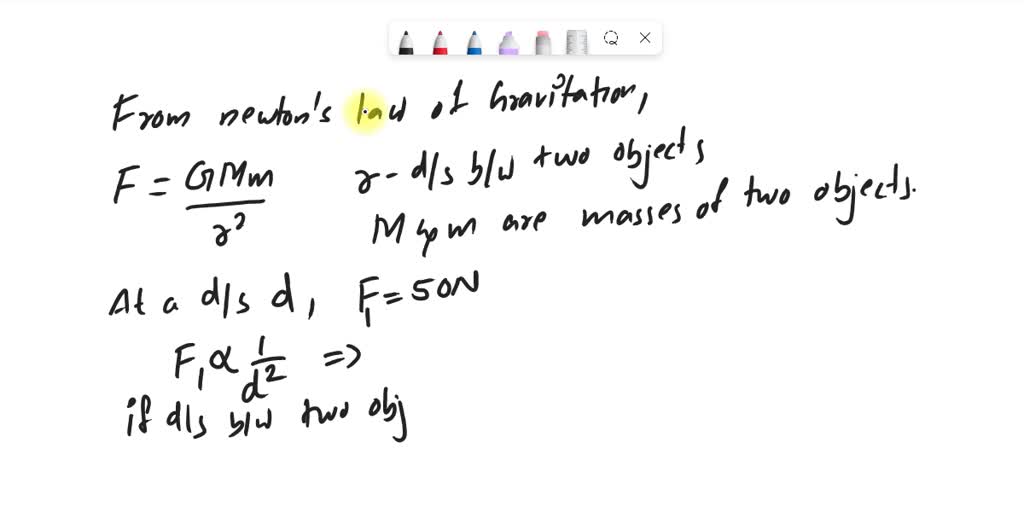 From newton's law of Gravitation,
F = GMm/r² r - d/s b/w two objects
M & m are masses of two objects.
At a d/s d, F₁ = 50N
F₁ ∝ 1/d² =>
if d/s b/w two obj